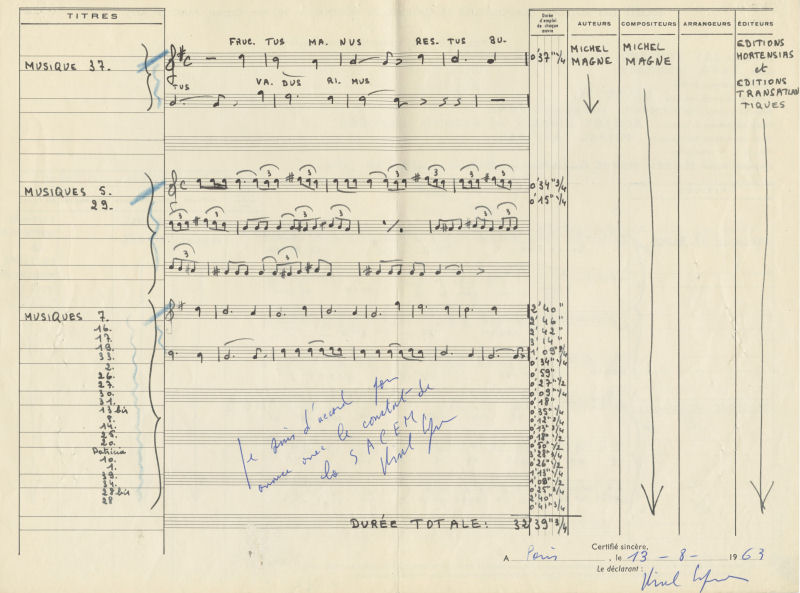 TITRES
Durée d'emploi de chaque œuvre
AUTEURS
COMPOSITEURS
ARRANGEURS
ÉDITEURS
FRUC. TUS MA. NUS RES. TUS BU.
MUSIQUE 37.
0'37"1/4
MICHEL
MAGNE
MICHEL
MAGNE
EDITIONS
HORTENSIAS
et
EDITIONS
TRANSATLAN
TIQUES
TUS VA. DUS RI. MUS
MUSIQUES 5.
29.
0'34"3/4
0'15"1/4
3 3 3 3
3 3 3
3 3
MUSIQUES 7.
16.
17.
18.
33.
2.
26.
27.
30.
31.
13 bis
8.
14.
25.
20.
Patricia
10.
1.
39.
34.
28 bis
28
2'40"
2'46"
2'42"
3'14"
1'09"3/4
0'34"1/4
0'59"
0'27"1/2
0'09"1/4
0'18"
0'35"1/4
0'12"3/4
0'13"3/4
0'18"1/2
0'50"1/2
3'28"3/4
0'26"1/2
1'13"1/4
1'08"1/2
0'25"3/4
2'40"
0'41"3/4
Je suis d'accord pour
avec le constat de
la SACEM
DURÉE TOTALE: 32'39"3/4
Certifié sincère,
A Paris, le 13 - 8 - 1963
Le déclarant :